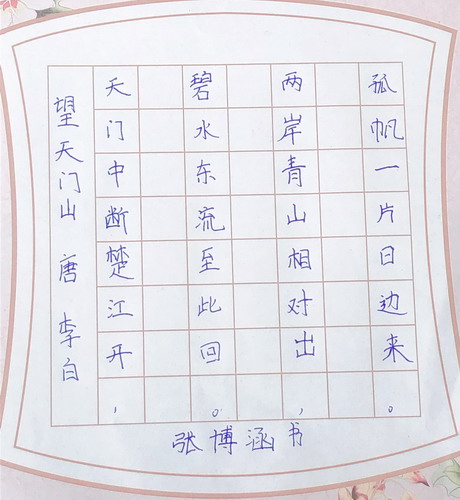 望天门山 唐 李白
天门中断楚江开，
碧水东流至此回。
两岸青山相对出，
孤帆一片日边来。
张博涵书